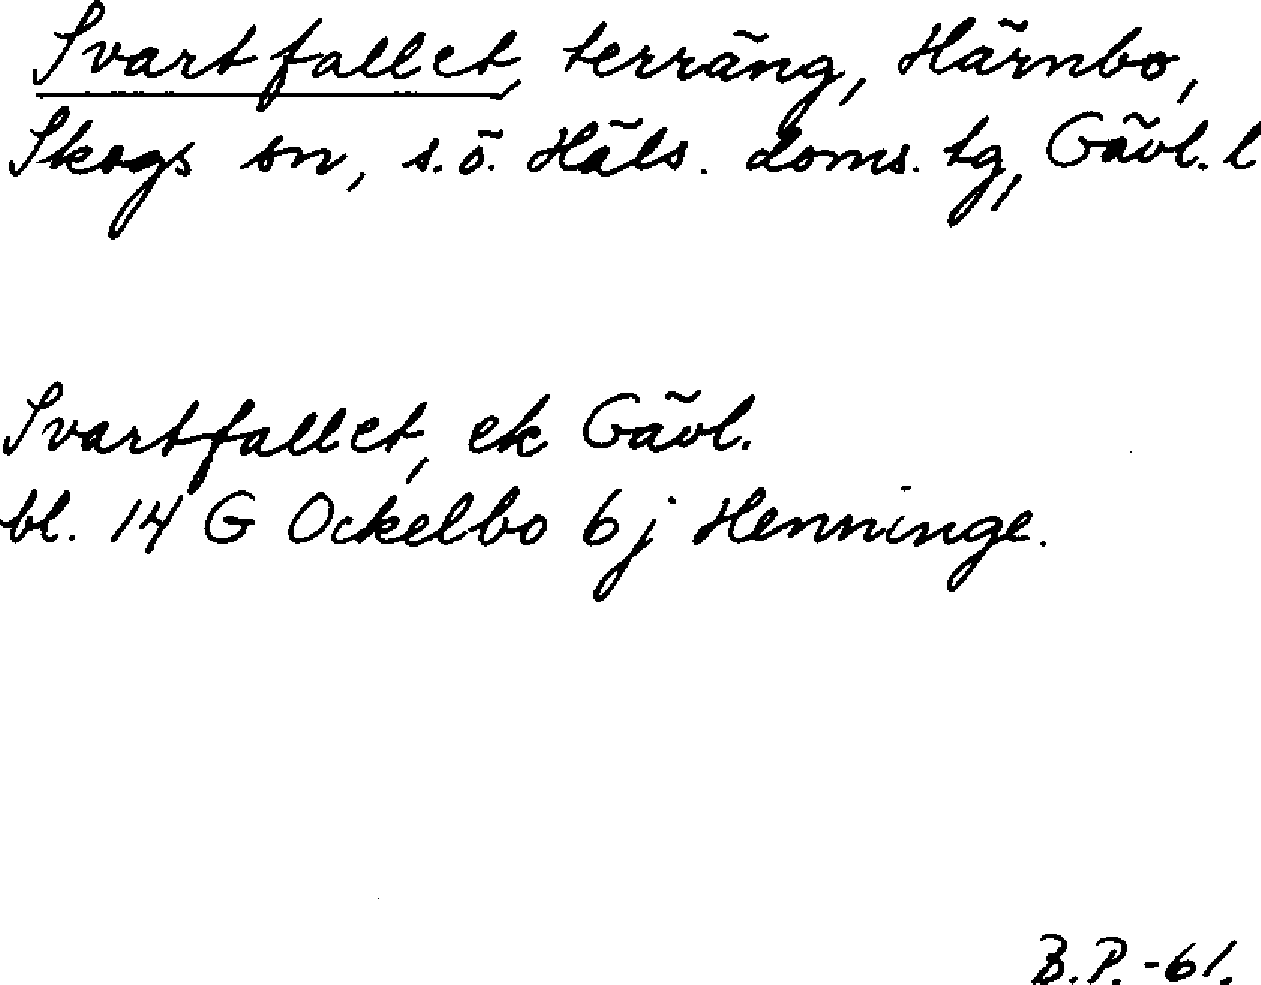 Svartfallet, terräng, Härnbo,
Skogs sn, s.ö. Häls. doms. tg, Gävl. l
Svartfallet, ek Gävl.
bl. 14 G Ockelbo 6 j Henninge.
B.P.-61.